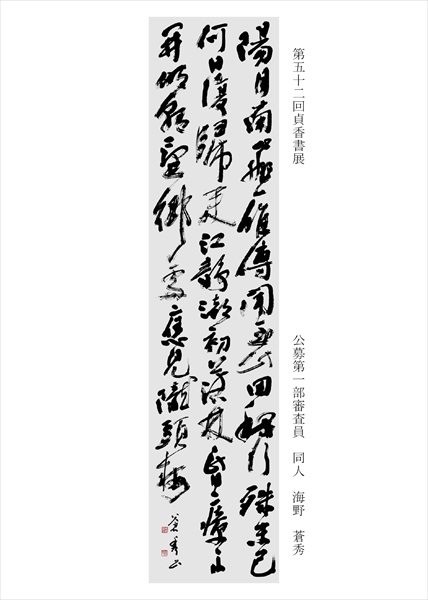 第五十二回貞香書展
公募第一部審査員　同人　海野　蒼秀
陽月南飛雁傳聞至此回我行殊未已
何日復歸来江靜潮初落林昏瘴不
開明朝望鄉處應見隴頭梅
蒼秀